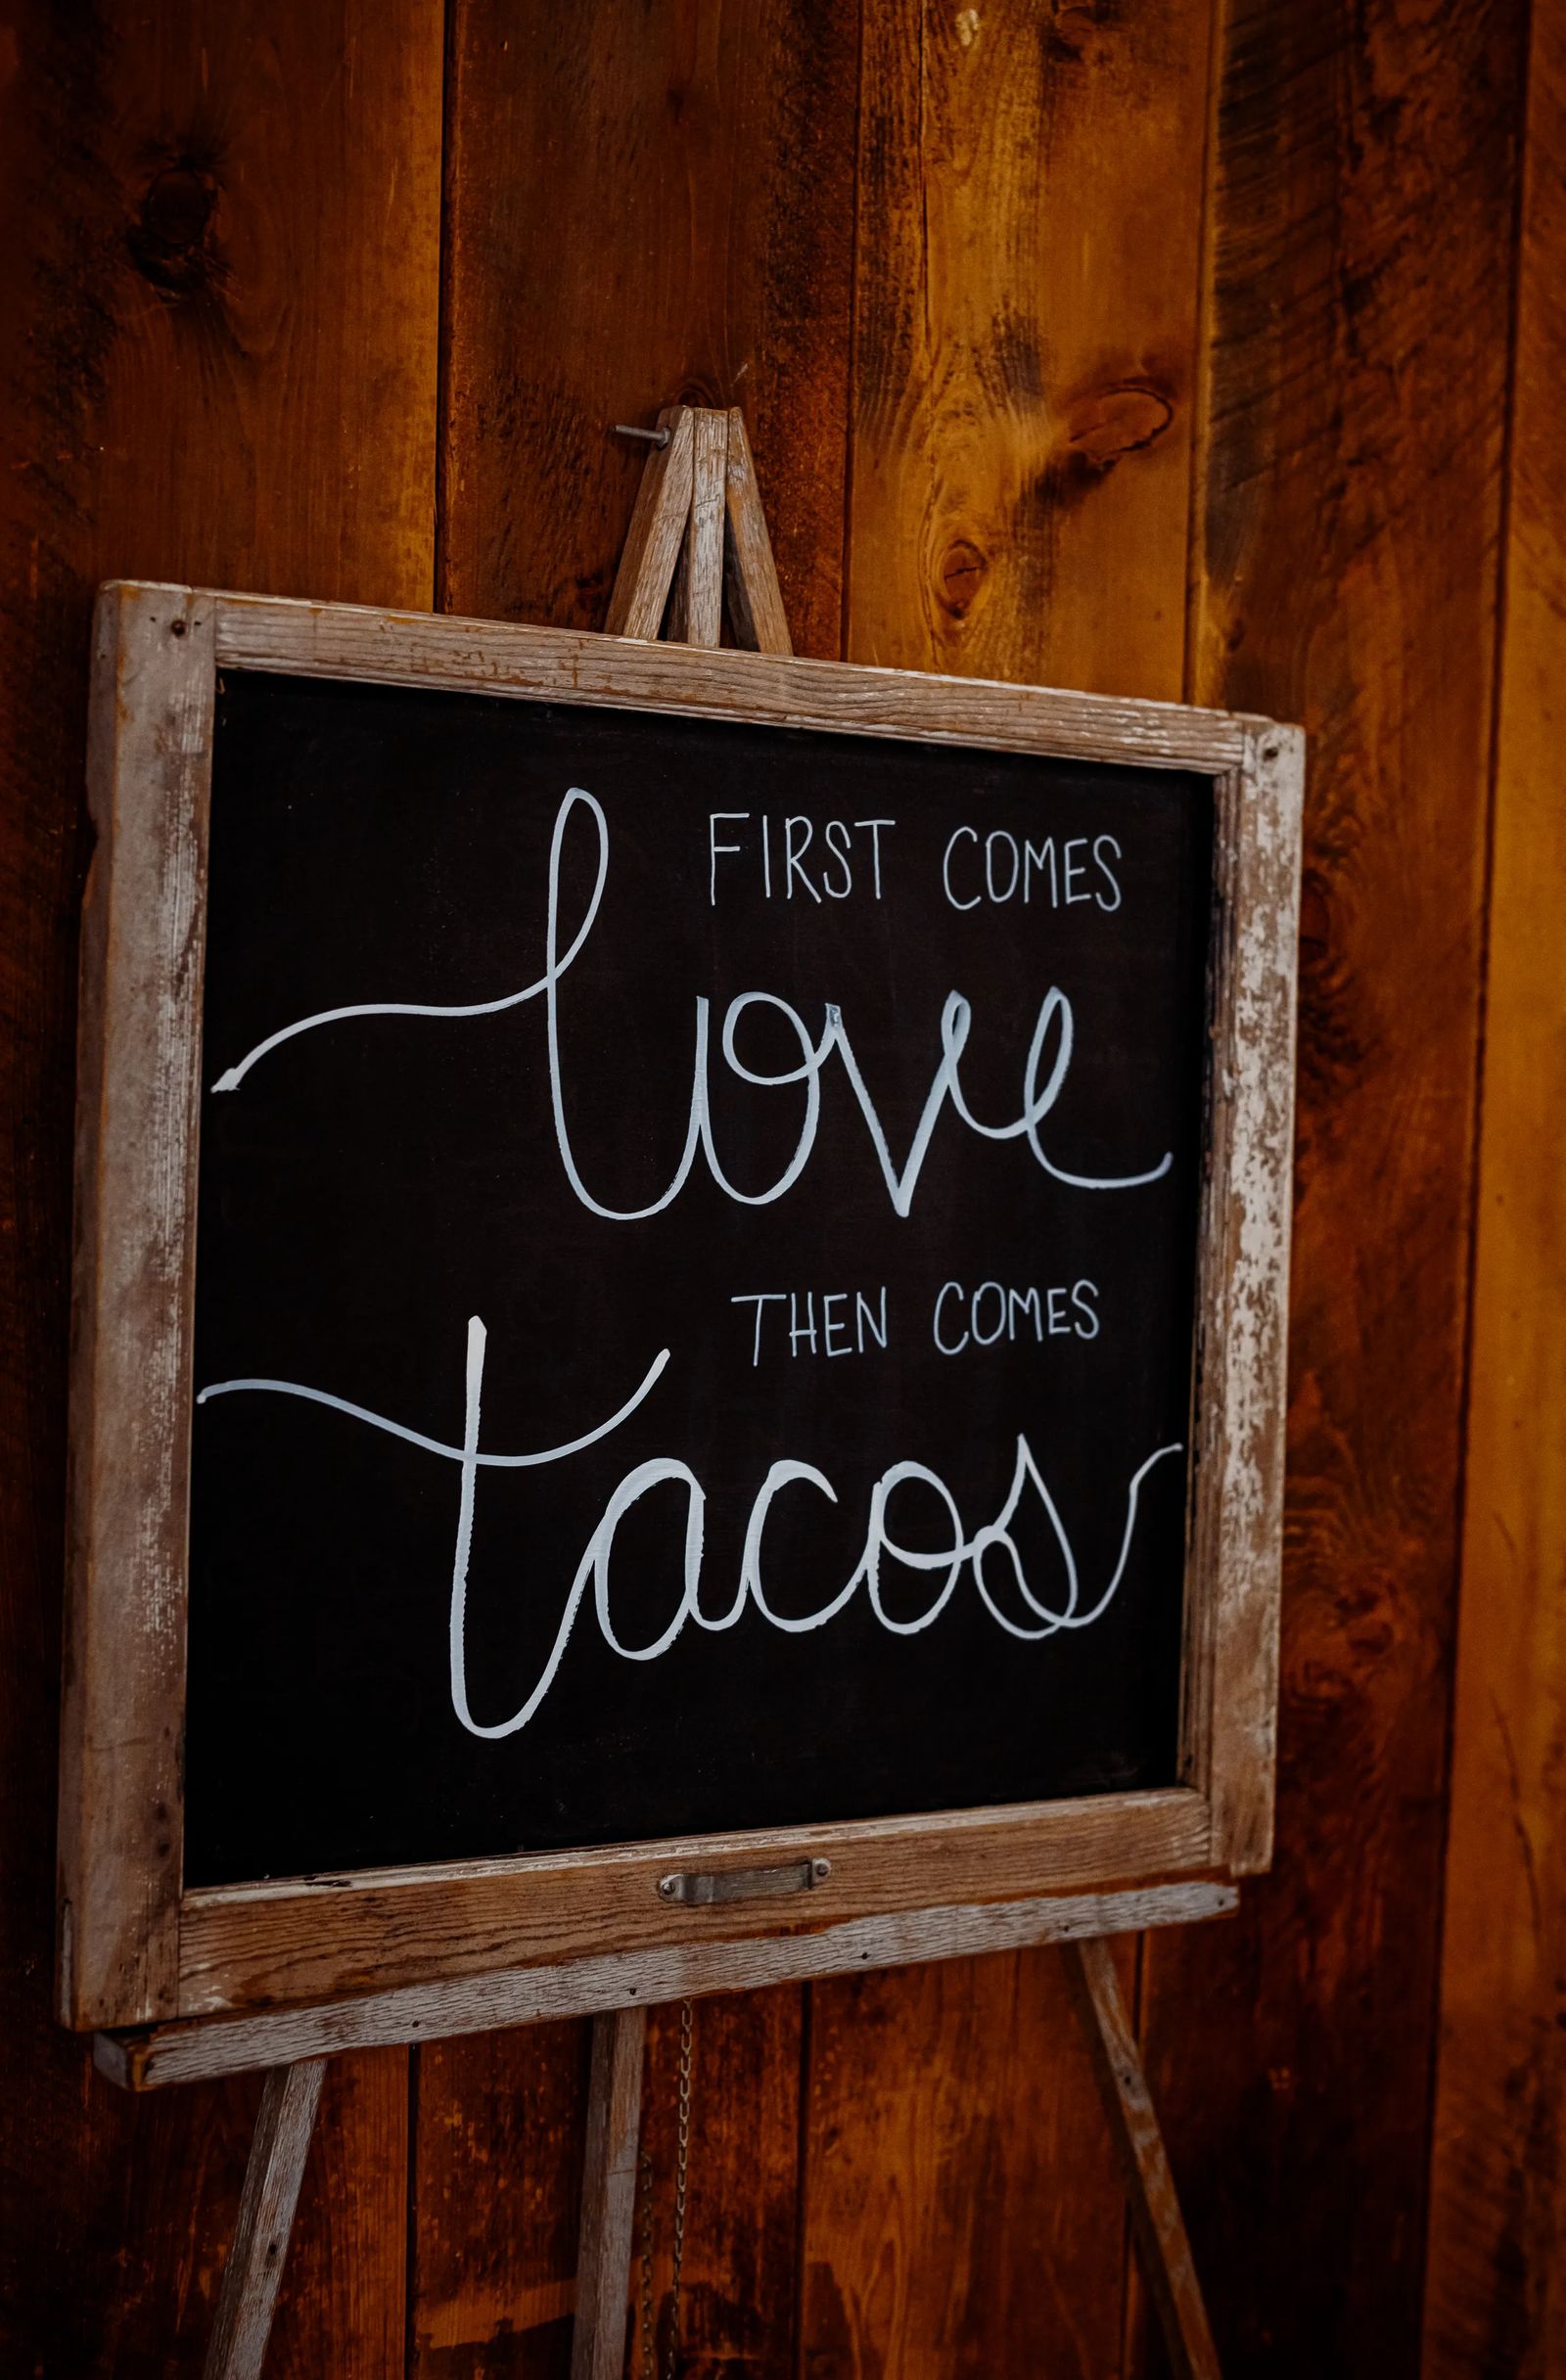 FIRST COMES
love
THEN COMES
tacos